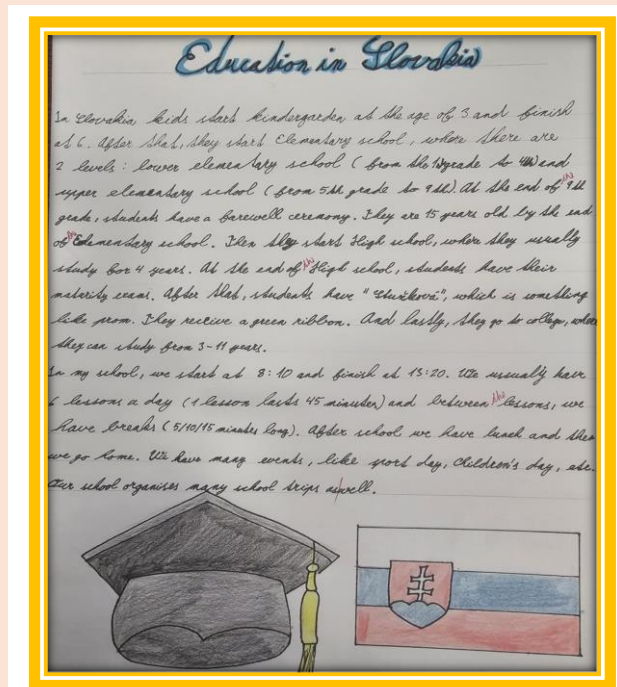 Education in Slovakia
In Slovakia kids start kindergarden at the age of 3 and finish
at 6. After that, they start Elementary school, where there are
2 levels: lower elementary school (from the 1st grade to 4th) and
upper elementary school (from 5th grade to 9th). At the end of the 9th
grade, students have a farewell ceremony. They are 15 years old by the end
of the Elementary school. Then they start High school, where they usually
study for 4 years. At the end of the High school, students have their
maturity exams. After that, students have "Stužková", which is something
like prom. They recieve a green ribbon. And lastly, they go to college, where
they can study from 3-11 years.
In my school, we start at 8:10 and finish at 13:20. We usually have
6 lessons a day (1 lesson lasts 45 minutes) and between the lessons, we
have breaks (5/10/15 minutes long). After school we have lunch and then
we go home. We have many events, like sport day, children's day, etc.
Our school organises many school trips as well.